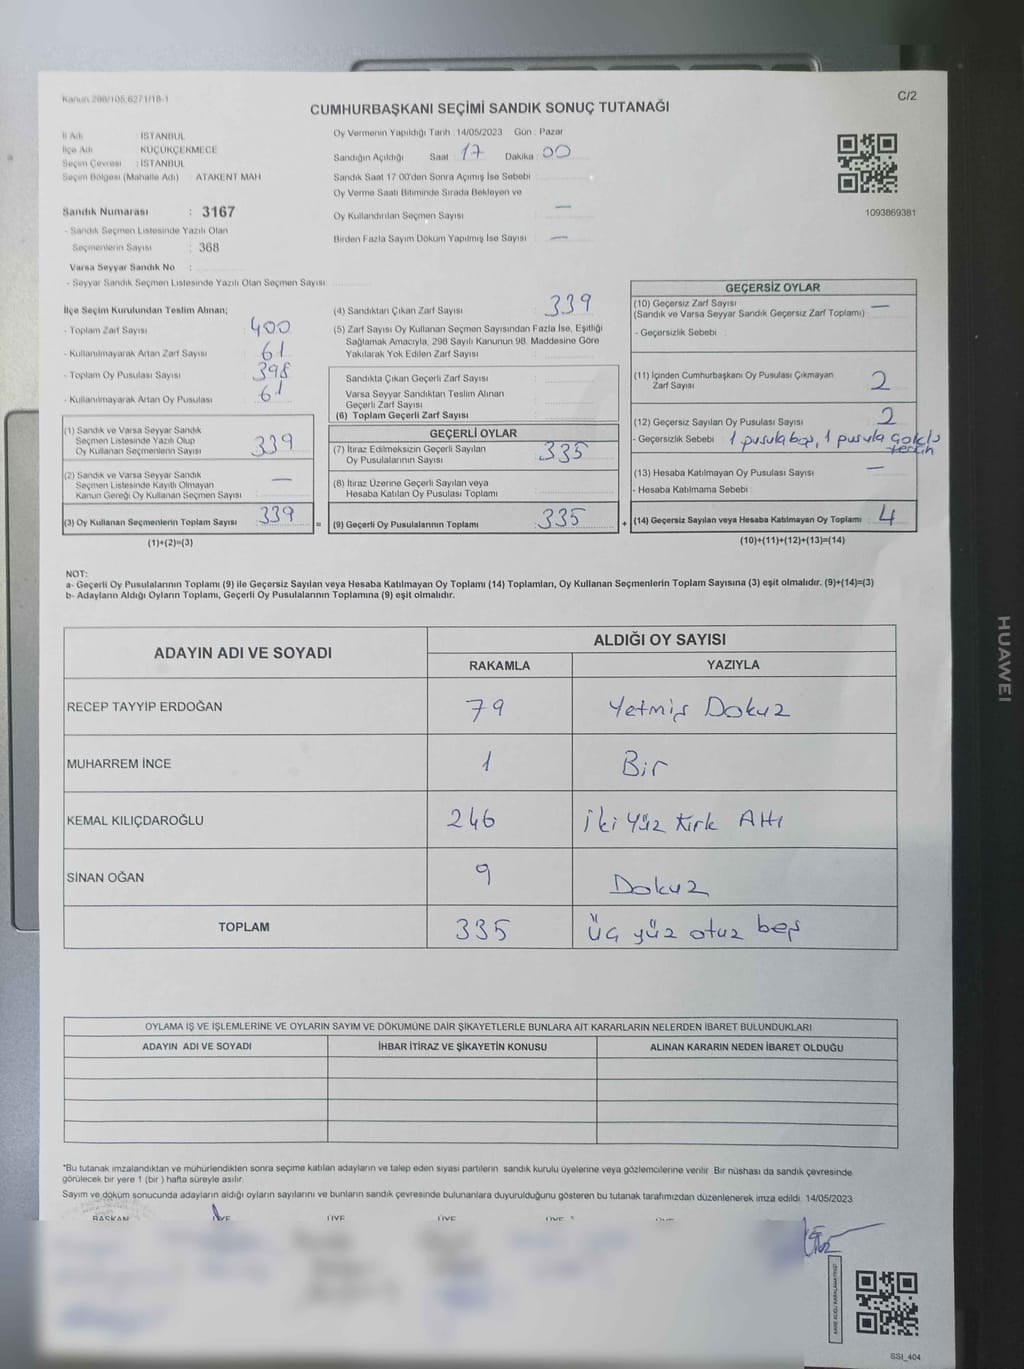 Kanun 298/105,6271/18-1
C/2
CUMHURBAŞKANI SEÇİMİ SANDIK SONUÇ TUTANAĞI
İl Adı : İSTANBUL
İlçe Adı : KÜÇÜKÇEKMECE
Seçim Çevresi : İSTANBUL
Seçim Bölgesi (Mahalle Adı) : ATAKENT MAH.
Sandık Numarası : 3167
- Sandık Seçmen Listesinde Yazılı Olan
Seçmenlerin Sayısı : 368
Varsa Seyyar Sandık No :
- Seyyar Sandık Seçmen Listesinde Yazılı Olan Seçmen Sayısı
Oy Vermenin Yapıldığı Tarih :14/05/2023 Gün : Pazar
Sandığın Açıldığı Saat : 17 Dakika : 00
Sandık Saat 17:00'den Sonra Açımış İse Sebebi
Oy Verme Saati Bitiminde Sırada Bekleyen ve
Oy Kullandırılan Seçmen Sayısı —
Birden Fazla Sayım Döküm Yapılmış İse Sayısı —
1093869381
İlçe Seçim Kurulundan Teslim Alınan;
- Toplam Zarf Sayısı 400
- Kullanılmayarak Artan Zarf Sayısı 61
- Toplam Oy Pusulası Sayısı 398
- Kullanılmayarak Artan Oy Pusulası 61
(1) Sandık ve Varsa Seyyar Sandık
Seçmen Listesinde Yazılı Olup
Oy Kullanan Seçmenlerin Sayısı 339
(2) Sandık ve Varsa Seyyar Sandık
Seçmen Listesinde Kayıtlı Olmayan
Kanun Gereği Oy Kullanan Seçmen Sayısı —
(3) Oy Kullanan Seçmenlerin Toplam Sayısı 339 =
(1)+(2)=(3)
(4) Sandıktan Çıkan Zarf Sayısı 339
(5) Zarf Sayısı Oy Kullanan Seçmen Sayısından Fazla İse, Eşitliği
Sağlamak Amacıyla, 298 Sayılı Kanunun 98. Maddesine Göre
Yakılarak Yok Edilen Zarf Sayısı
Sandıkta Çıkan Geçerli Zarf Sayısı
Varsa Seyyar Sandıktan Teslim Alınan
Geçerli Zarf Sayısı
(6) Toplam Geçerli Zarf Sayısı
GEÇERLİ OYLAR
(7) İtiraz Edilmeksizin Geçerli Sayılan
Oy Pusulalarının Sayısı 335
(8) İtiraz Üzerine Geçerli Sayılan veya
Hesaba Katılan Oy Pusulası Toplamı
(9) Geçerli Oy Pusulalarının Toplamı 335 +
GEÇERSİZ OYLAR
(10) Geçersiz Zarf Sayısı —
(Sandık ve Varsa Seyyar Sandık Geçersiz Zarf Toplamı)
- Geçersizlik Sebebi :
(11) İçinden Cumhurbaşkanı Oy Pusulası Çıkmayan
Zarf Sayısı 2
(12) Geçersiz Sayılan Oy Pusulası Sayısı 2
- Geçersizlik Sebebi : 1 pusula boş, 1 pusula çoklu
tercih
(13) Hesaba Katılmayan Oy Pusulası Sayısı —
- Hesaba Katılmama Sebebi :
(14) Geçersiz Sayılan veya Hesaba Katılmayan Oy Toplamı 4
(10)+(11)+(12)+(13)=(14)
NOT:
a- Geçerli Oy Pusulalarının Toplamı (9) ile Geçersiz Sayılan veya Hesaba Katılmayan Oy Toplamı (14) Toplamları, Oy Kullanan Seçmenlerin Toplam Sayısına (3) eşit olmalıdır. (9)+(14)=(3)
b- Adayların Aldığı Oyların Toplamı, Geçerli Oy Pusulalarının Toplamına (9) eşit olmalıdır.
ADAYIN ADI VE SOYADI
ALDIĞI OY SAYISI
RAKAMLA YAZIYLA
RECEP TAYYİP ERDOĞAN 79 Yetmiş Dokuz
MUHARREM İNCE 1 Bir
KEMAL KILIÇDAROĞLU 246 İki Yüz Kırk Altı
SİNAN OĞAN 9 Dokuz
TOPLAM 335 Üç yüz otuz beş
OYLAMA İŞ VE İŞLEMLERİNE VE OYLARIN SAYIM VE DÖKÜMÜNE DAİR ŞİKAYETLERLE BUNLARA AİT KARARLARIN NELERDEN İBARET BULUNDUKLARI
ADAYIN ADI VE SOYADI İHBAR İTİRAZ VE ŞİKAYETİN KONUSU ALINAN KARARIN NEDEN İBARET OLDUĞU
*Bu tutanak imzalandıktan ve mühürlendikten sonra seçime katılan adayların ve talep eden siyasi partilerin sandık kurulu üyelerine veya gözlemcilerine verilir. Bir nüshası da sandık çevresinde
görülecek bir yere 1 (bir ) hafta süreyle asılır.
Sayım ve döküm sonucunda adayların aldığı oyların sayılarını ve bunların sandık çevresinde bulunanlara duyurulduğunu gösteren bu tutanak tarafımızdan düzenlenerek imza edildi. 14/05/2023
BAŞKAN ÜYE ÜYE ÜYE ÜYE
SSI_404
HUAWEI